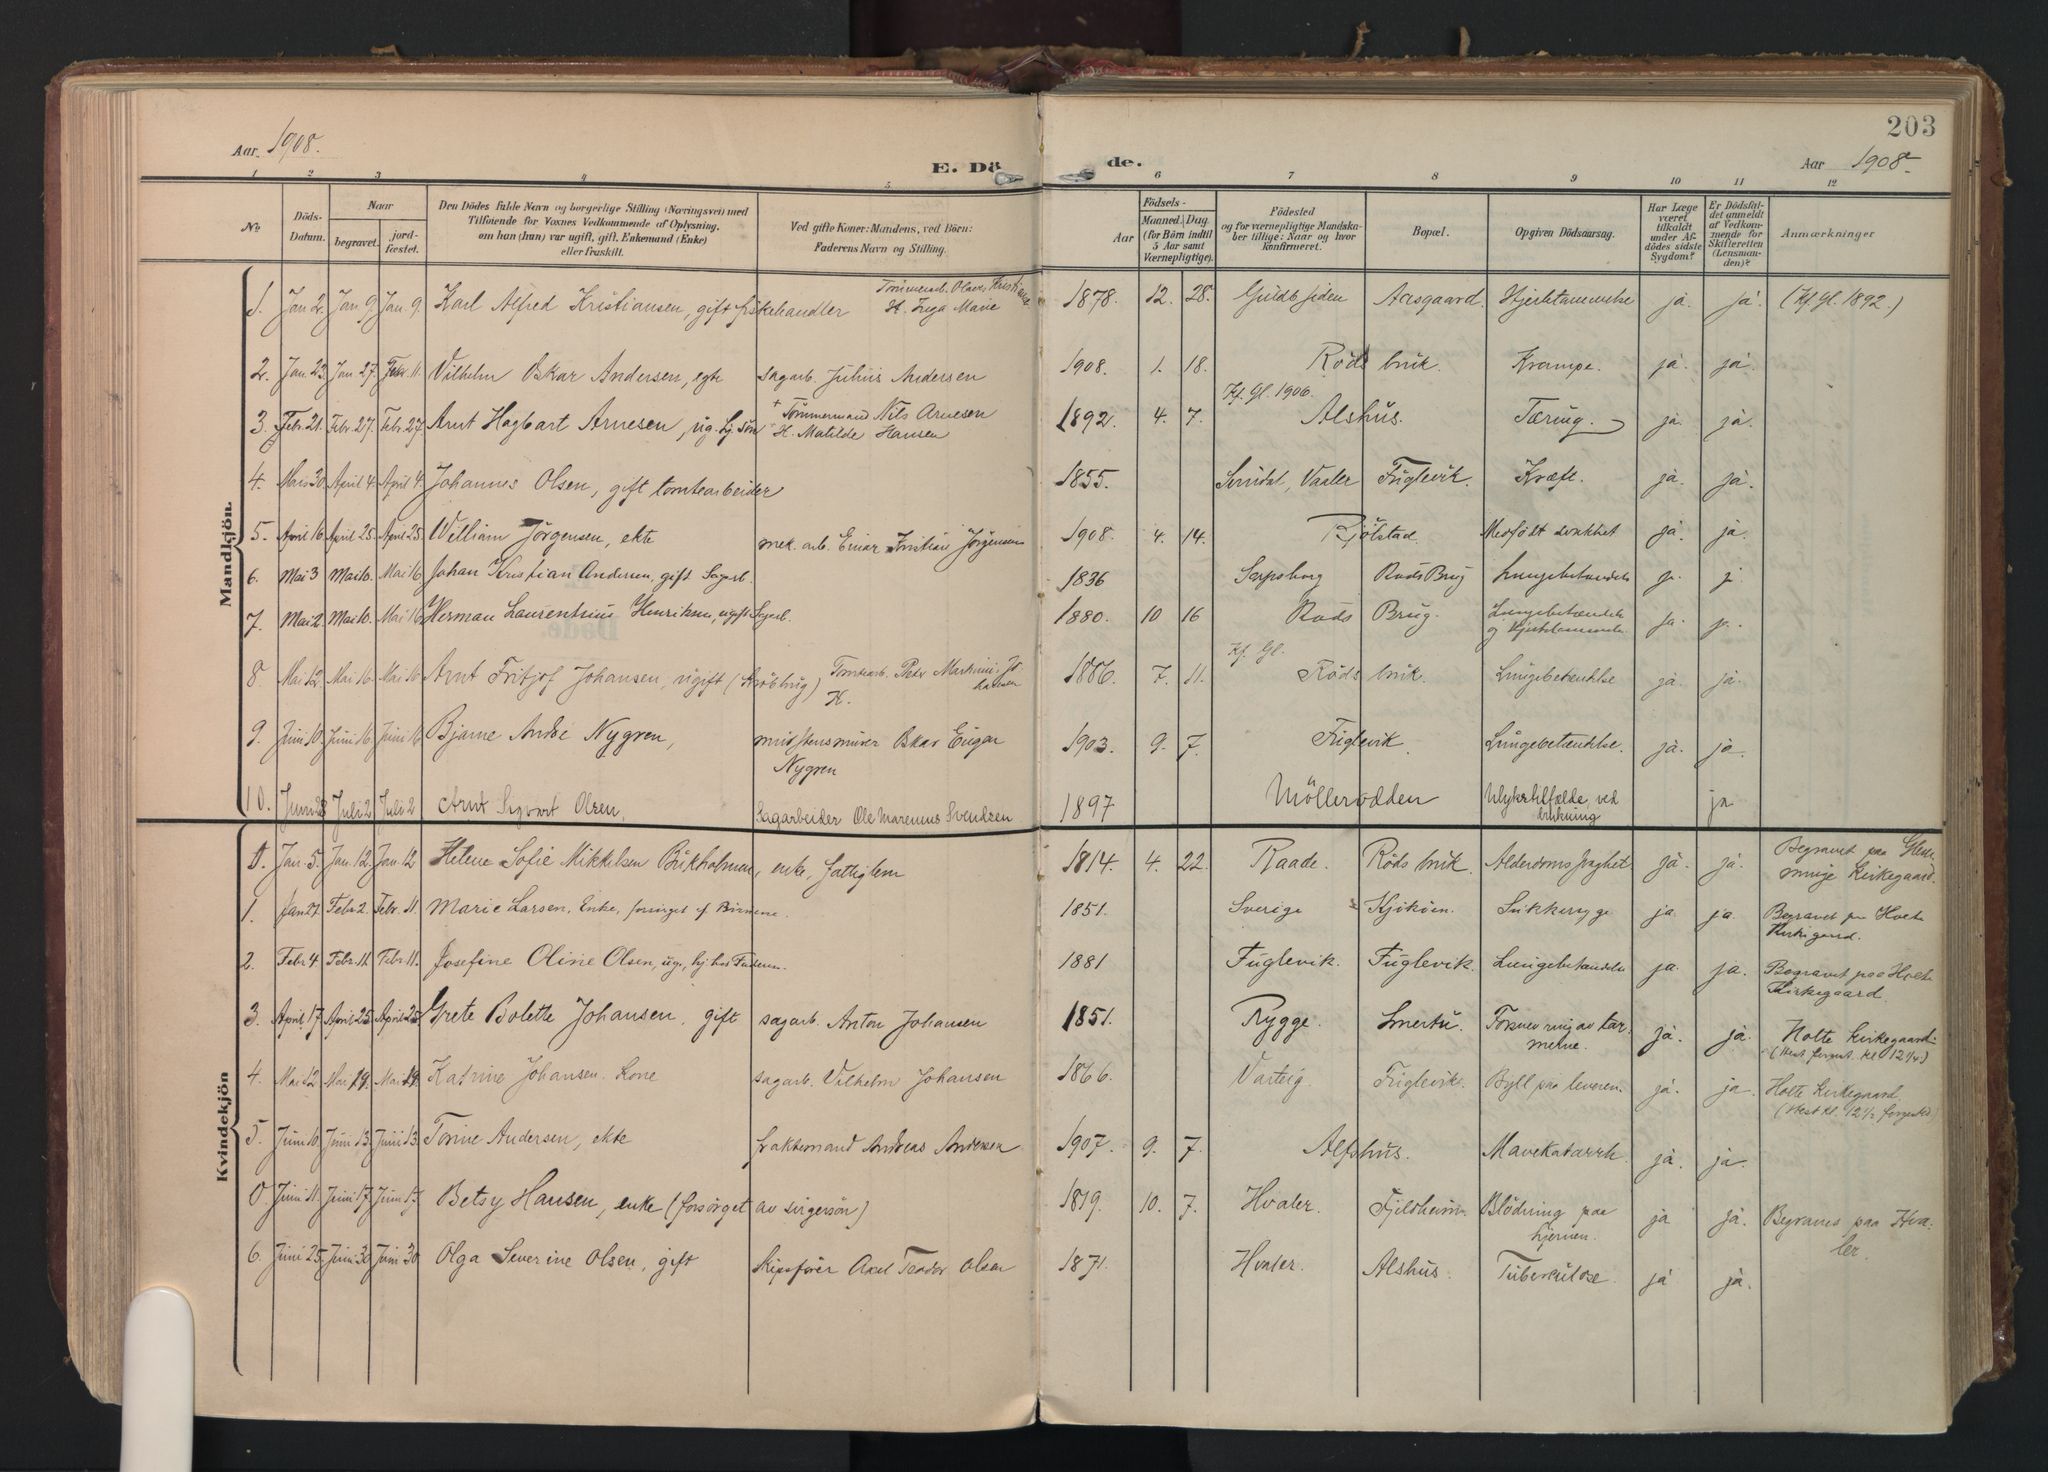 203
Aar 1908.
E. Dö
de.
Aar 1908
1 2 3 4 5
6 7 8 9 10 11 12
No
Döds-
Datum.
Naar
begravet.
jord-
fæstet.
Den Dödes fulde Navn og borgerlige Stilling (Næringsvei) med
Tilföiende for Voxnes Vedkommende af Oplysning,
om han (hun) var ugift, gift, Enkemand (Enke)
eller fraskilt.
Ved gifte Koner: Mandens, ved Börn:
Faderens Navn og Stilling.
Födsels-
Aar
Maaned. Dag
(for Börn indtil
5 Aar samt
Værnepligtige).
Födested
og for værnepligtige Mandska-
ber tillige: Naar og hvor
konfirmeret.
Bopæl.
Opgiven Dödsaarsag.
Har Læge
været
tilkaldt
under Af-
dödes sidste
Sygdom?
Er Dödsfal-
det anmeldt
af Vedkom-
mende for
Skifteretten
(Lensman-
den)?
Anmærkninger
Mandkjön.
1. Jan 2. Jan 9. Jan 9. Karl Alfred Kristiansen, gift fiskehandler H. Inga Marie 1878 12. 28. Aasgaard. ja. ja. (Kf Gl. 1892.)
2. Jan. 23. Jan 27. Febr. 11. Vilhelm Oskar Andersen, egte sagarb. Julius Andersen 1908. 1. 18. Röds bruk. Krampe. ja. ja.
Kf. Gl. 1906.
3. Febr 21. Febr. 27. Febr. 27. Arnt Hagbart Arnesen, ug. + Tömmermand Nils Arnesen
H. Matilde Hansen 1892. 4. 7. Alshus. Tæring. ja. ja.
4. Mars 30 April 4. April 4. Johannes Olsen, gift tomtearbeider 1855. Vaaler Fuglevik. Kræft. ja. ja.
5. April 16. April 25. April 25. William Jörgensen, ekte mek. arb. Einar Kristian Jörgensen 1908. 4. 14. Medfödt svakhet ja. ja.
6. Mai 3 Mai 10. Mai 16. Johan Kristian Andersen, gift Sagarb. 1836 Sarpsborg Rods Brug Lungebetændelse j. j.
7. Mai 2. Mai 10. Mai 16 Herman Laurentius Henriksen, ugift Sagarb. 1880. 10 16 Rods Brug. Lungebetændelse
og Hjertelammelse ja. j.
Kf. Gl.
8. Mai 12. Mai 16. Mai 16 Arnt Fritjof Johansen, ugift Tomtearb. Peter Martinius Jo
hansen
H. 1886. 7. 11. Röds bruk. Lungebetændelse ja. ja.
9. Juni 10. Juni 16. Juni 16 Bjarne Andre Nygren, Oskar Eugen
Nygren 1903. 9. 7. Fuglevik. Lungebetændelse. ja. ja
10. Juni 28 Juli 2 Juli 2 Arnt Sigvart Olsen, Sagarbeider Ole Marenius Svendsen 1897 Möllerodden Ulykkestilfælde, ved
drukning ja
Kvindekjön
0. Jan. 5. Jan. 12. Jan. 12 Helene Sofie Mikkelsen enke, fattiglem 1814. 4. 22. Raade. Röds bruk. Alderdomssvaghet ja. ja. Begravet paa
kirkegaard.
1. Jan 27. Febr 2. Febr. 11. Marie Larsen, Enke, forsörget af Börnene. 1851. Sverige Kjököen. Sukkersyge ja. ja. Begravet paa Holte
Kirkegaard.
2. Febr 4 Febr. 11. Febr. 11. Josefine Oline Olsen, ug., hj. hos Faderen. 1881 Fuglevik. Fuglevik. Lungebetændelse ja. ja. Begravet paa Holte
Kirkegaard.
3. April 17 April 25 April 25 Grete Bolette Johansen, gift sagarb. Anton Johansen 1851. Rygge. Smertu. Forsnevring av tar-
mene. ja. ja. Holte kirkegaard
4. Mai 12 Mai 19. Mai 19. Katrine Johansen. Kone sagarb. Vilhelm Johansen 1866. Varteig. Fuglevik. Byll paa leveren. ja. ja. Holte Kirkegaard.
5. Juni 10. Juni 13. Juni 13. Torine Andersen, ekte fraktemand Andreas Andersen 1907. 9. 7. Alshus. Mavekatarrh. ja. ja.
0. Juni 11. Juni 17. Juni 17. Betsy Hansen, enke (forsörget av svigersön) 1819. 10. 7. Hvaler. Fjeldheim. Blödning paa
hjernen. ja ja. Begraves paa Hva-
ler.
6. Juni 25. Juni 30 Juni 30 Olga Severine Olsen, gift skipsförer Axel Teodor Olsen 1871. Hvaler. Alshus. Tuberkulose. ja ja.